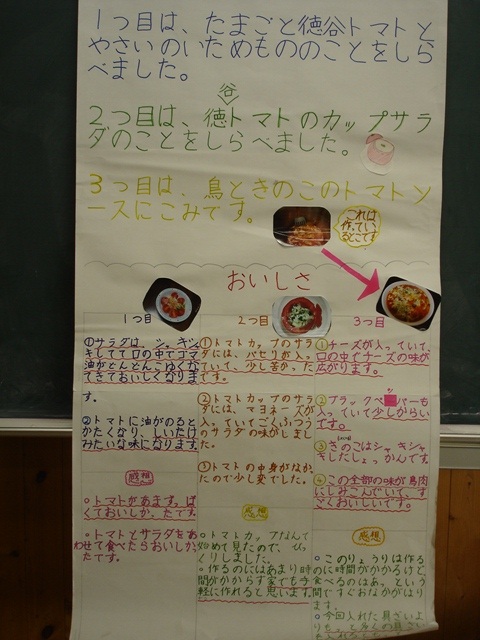 1つ目は、たまごと徳谷トマトと
やさいのいためもののことをしら
べました。
谷
2つ目は、徳トマトのカップサラ
ダのことをしらべました。
3つ目は、鳥ときのこのトマトソ
ースにこみです。
これは
作っている
とこです
おいしさ
1つ目
①サラダは、シャキシャ
キしてて口の中でゴマ
油がとんとんこゆくが
でてきておいしくなりま
す。
②トマトに油がのると
かたくなり、しいたけ
みたいな味になります
感想
○トマトがあます。ぱ
くておいしかったです。
○トマトとサラダをあ
わせて食べたらおいしか
たです。
2つ目
①トマトカップのサラ
ダには、パセリが入っ
ていて、少し苦かった
②トマトカップのサラ
ダには、マヨネーズが
入っていてごくふつう
のサラダの味がしまし
た。
③トマトの中身がなか
たので少し変でした。
感想
○トマトカップなんて
始めて見たので、びっ
くりしました。
○作るのにはあまり時
間がかからず家でも手
軽に作れると思います。
3つ目
①チーズが入っていて、
口の中でチーズの味が
広がります。
②ブラックペッパーも
入っていて少しからい
です。
③きのこはシャキシャ
キしたしょっかんです。
④この全部の味が鳥肉
にしみこんでいて、す
ごくおいしいです。
感想
○このりょうりは作る
のに時間がかかるけど、
食べるのはあっという
間ですぐおなかがはり
ます。
○今回入れた具ざい